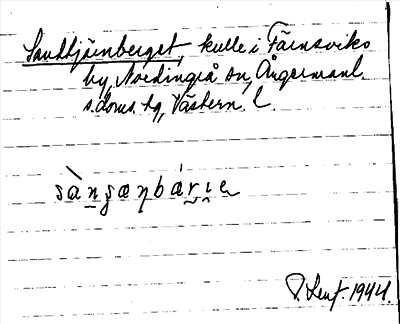 Sandtjärnberget, kulle i Färnsviks
by, Nordingrå sn, Ångermanl.
s. doms. hg, Västern. l.
sàngæŋbárıe
1944.